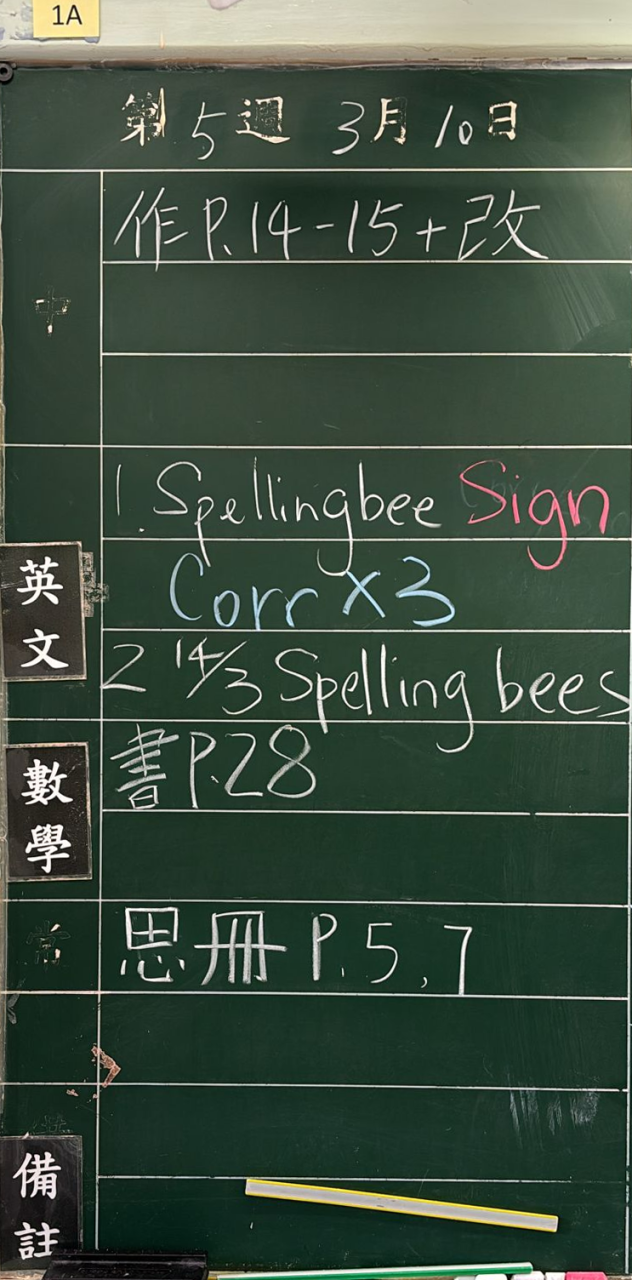 1A
第5週 3月10日
作P.14-15+改
中
1. Spellingbee Sign
Corr x3
英文
2 14/3 Spelling bees
數學
書P.28
常
思冊 P.5,7
備註